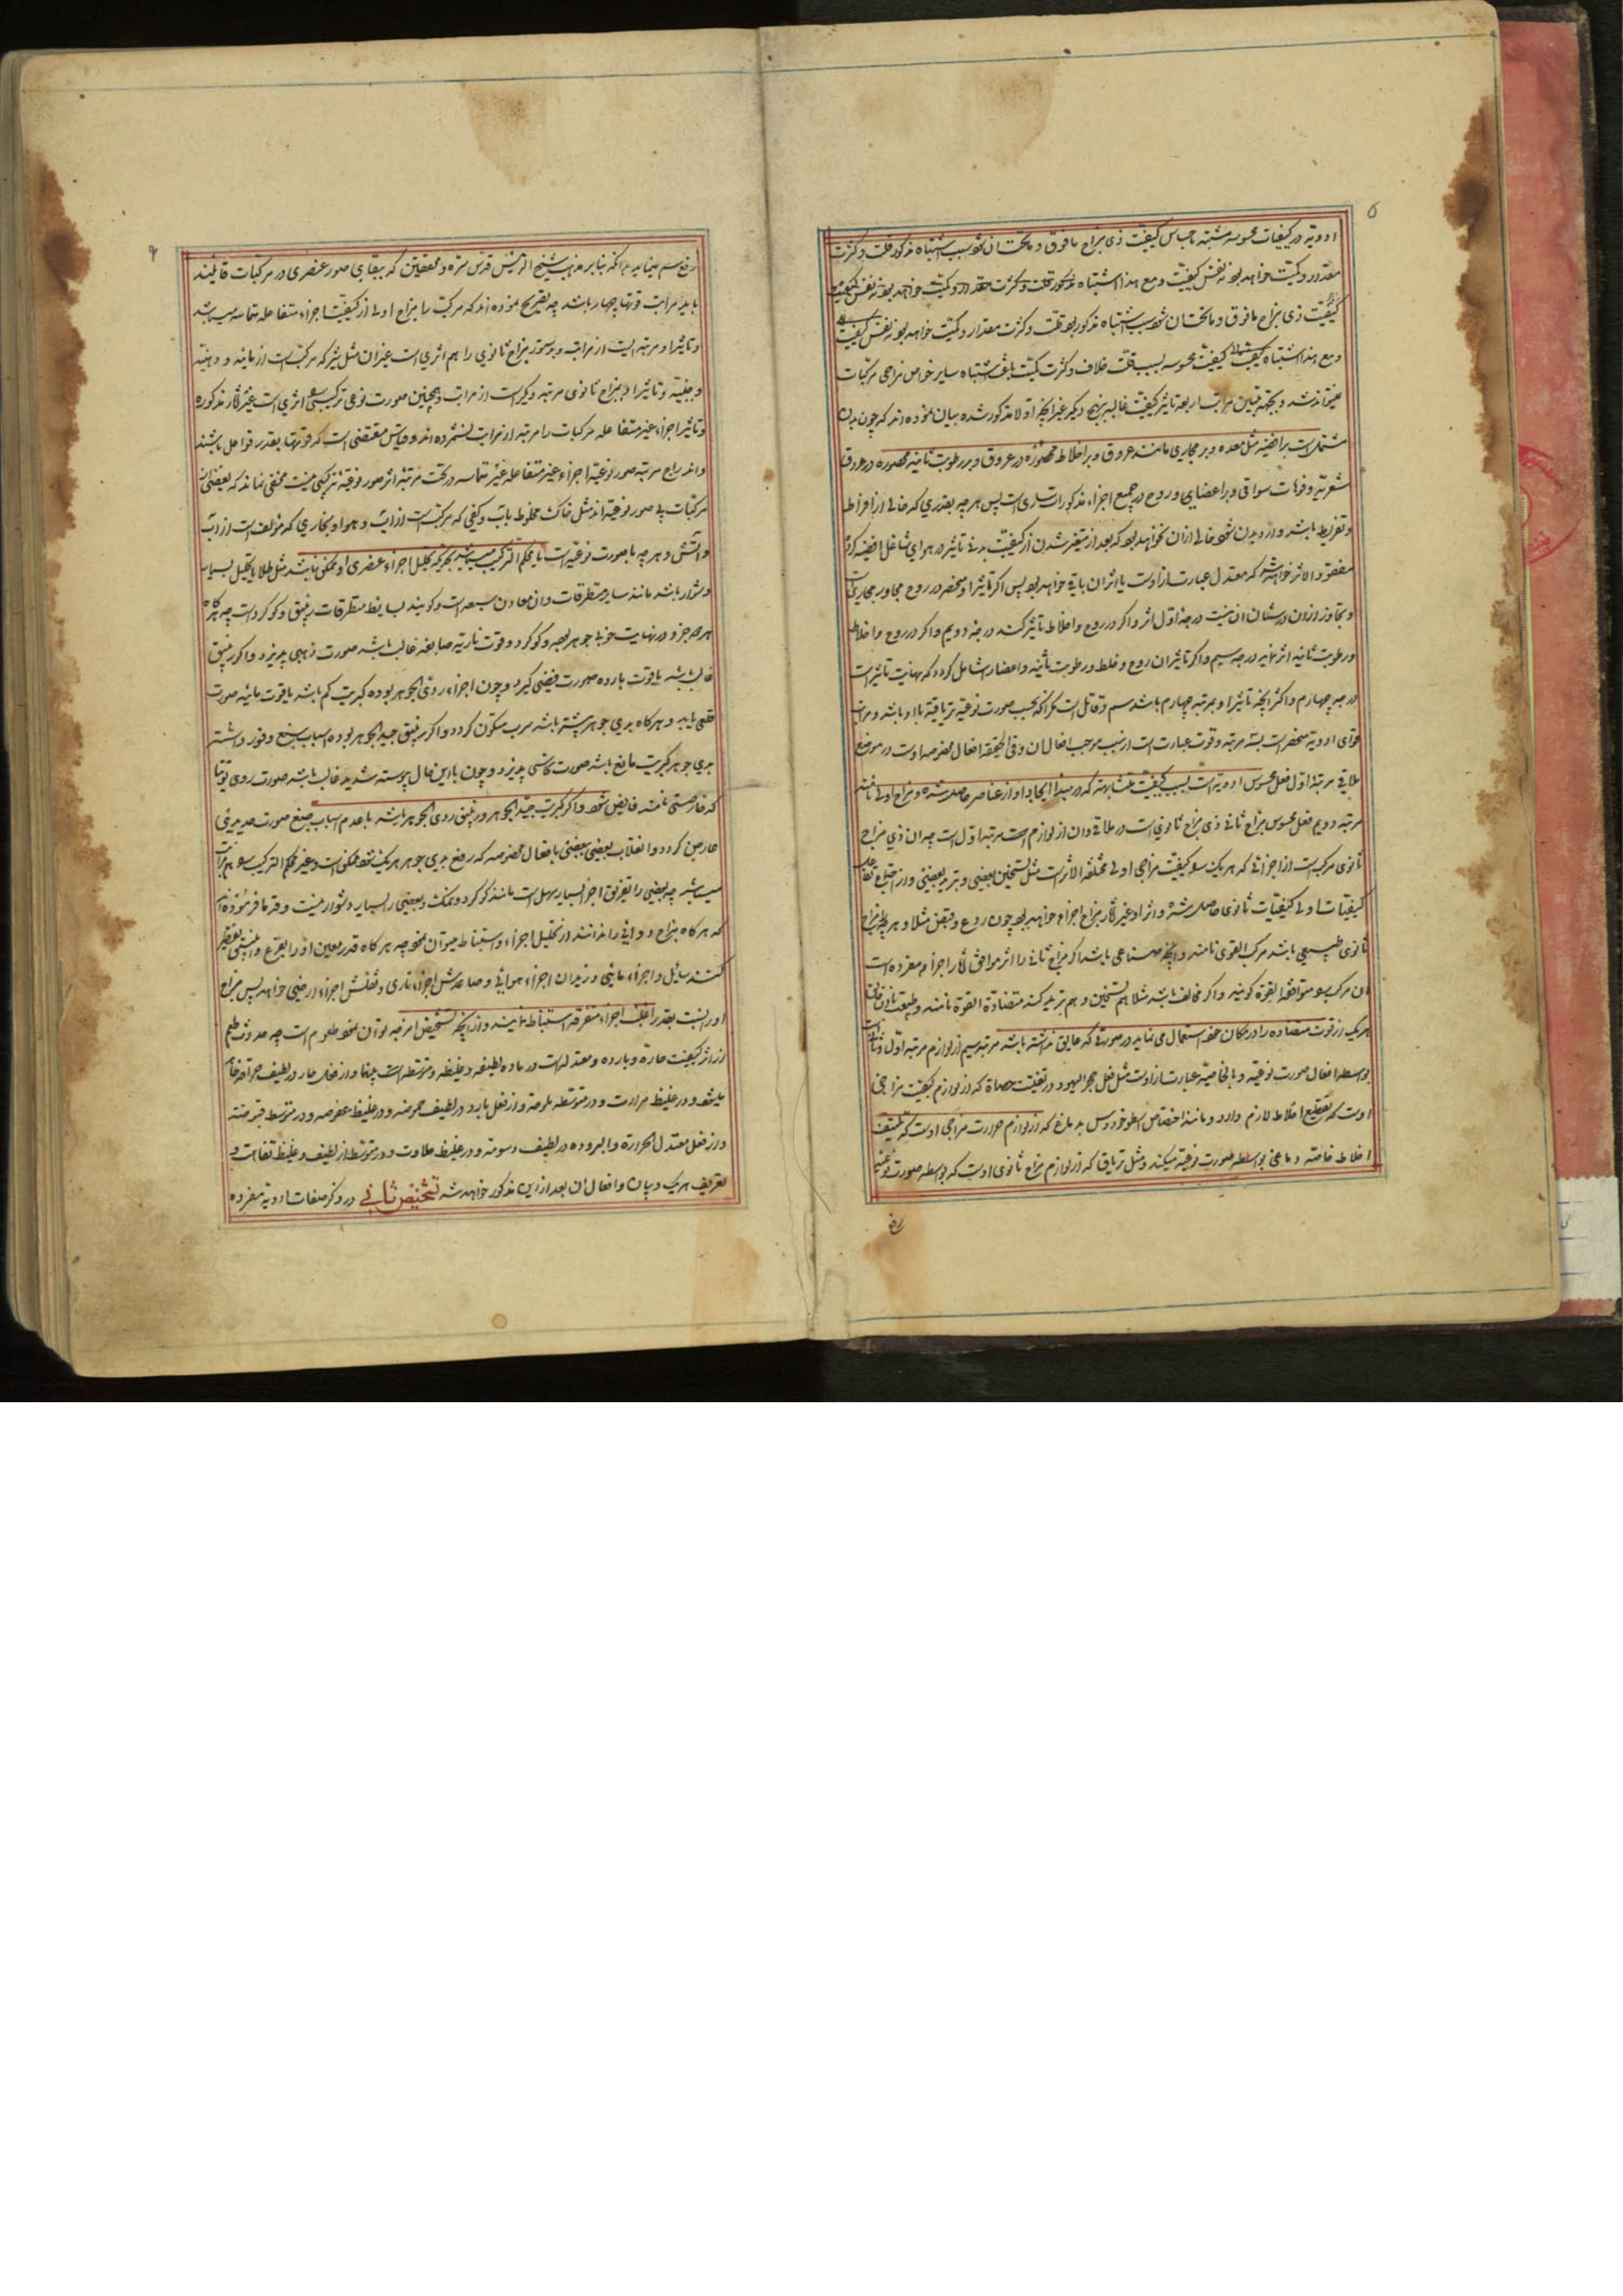 ۵
ادویه در کیفیات محسوسه مشتبه باجناس کیفیت ذی مزاج مافوق و ماتحت آن شود بسبب اشتباه مذکور قلت و کثرت
مقدار و کمیت خواهد بود نه نفس کیفیت و مع هذا اشتباه مذکور قلت و کثرت مقدار و کمیت خواهد بود نه نفس کیفیت
کیفیت ذی مزاج مافوق و ماتحت آن شود سبب اشتباه مذکور بود قلت و کثرت مقدار و کمیت خواهد بود نه نفس کیفیت
و مع هذا اشتباه کیفیت کیفیت محسوسه بسبب قلت خلاف و کثرت کمیت باعث اشتباه سایر خواص مزاجی مرکبات
نمیتواند شد و بجهة تبیین مراتب اربعه تاثیر کیفیت غالبه بنهج دیگر غیر آنچه اولا مذکور شده بیان نموده اند که چون بدن
مشتمل است بر افضیه مثل معده و بر مجاری مانند عروق و بر اخلاط محصوره در عروق و بر رطوبت ثانیه محصوره در عروق
شعریه و فوهات سواقی و بر اعضای و روح در جمیع اجزاء مذکورات ساری است پس هر چه بقدری که خالی از افراط
و تفریط باشد وارد بدن شود خالی از آن نخواهد بود که بعد از متغیر شدن از کیفیت بدنی تاثیر در هوای شاغل افضیه کرده
مفقود الاثر خواهد شد که معتدل عبارت از اوست یا اثر آن باقی خواهد بود پس اگر تاثیر او منحصر در روح مجاور مجاریست
و تجاوز از آن در شان آن نیست درجه اول اثر و اگر در روح و اخلاط تاثیر کند درجه دویم و اگر در روح و اخلاط
و رطوبت ثانیه اثر نماید درجه سیم و اگر تاثیر آن روح و خلط و رطوبت ثانیه و اعضا را شامل گردد که نهایت تاثیر است
درجه چهارم و اکثر آنچه تاثیر او بمرتبه چهارم باشد سم و قاتل است مگر آنکه بحسب صورت نوعیه تریاقیة با او باشد و مراتب
قوای ادویه منحصر است بسه مرتبه و قوت عبارت است از سبب موجب افعال آن و فی الحقیقه افعال مخصوصه اوست در موضع
ملاقی مرتبه اول فعل محسوس ادویه است بسبب کیفیت متشابهه که در مبدأ ایجاد او از عناصر حاصل شده و مزاج اولی نامند
مرتبه دویم فعل محسوس مزاج ثانی ذی مزاج ثانویست در ملاقی و آن از لوازم مرتبه اول است چه آن ذی مزاج
ثانوی مرکب است از اجزائی که هر یک بسو کیفیت مزاجی اولی مختلفة الاثر است مثل تسخین بعضی و تبرید بعضی و از اجتماع تفاعل
کیفیات اولی کیفیات ثانوی حاصل شده و اثر او غیر آثار مزاج اجزاء خواهد بود چون ردع و قبض مثلا و هر چه مزاج
ثانوی طبیعی باشد مرکب القوی نامند و آنچه صناعی باشد اگر مزاج ثانی را اثر موافق آثار اجزاء مفرده است
آن مرکب را متوافقة القوة گویند و اگر مخالف باشد مثلا هم تسخین و هم تبرید کند متضادة القوة نامند و طبیعت باذن خالق
هر یک از قوت متضاده را در مکان خود استعمال می نماید در صورتی که عایق نداشته باشد مرتبه سیم از لوازم مرتبه اول و ثانی است
بواسطه افعال صورت نوعیه و بالخاصیه عبارت از اوست مثل فعل حجر الیهود در تفتیت حصاة که از لوازم کیفیت مزاجی
اوست که تقطیع اخلاط لازم دارد و مانند اختصاص اسطوخودوس بدماغ که از لوازم حرارت مزاجی اوست که تلطیف
اخلاط خاصه دماغی بواسطه صورت نوعیه میکند و مثل تریاق که از لوازم مزاج ثانوی اوست که بواسطه صورت نوعیه
رفع
۶
رفع سم مینماید بدانکه بنابر مذهب شیخ الرئیس قدس سره و محققین که ببقای صور عنصری در مرکبات قائلند
باید مراتب قوتها چهار باشد چه تصریح نموده اند که مرکب را مزاج اولی از کیفیت اجزاء متفاعله متماسه میباشد
و تاثیر او مرتبه ایست از مراتب و بدستور مزاج ثانوی را هم اثری است غیر آن مثل شیر که مرکب است از مائیه و دهنیه
و جبنیه و تاثیر او بمزاج ثانوی مرتبه دیگر است از مراتب و همچنین صورت نوعی ترکیبی اثری است غیر آثار مذکوره
و تاثیر اجزاء غیر متفاعله مرکبات را مرتبه از مراتب نشمرده اند و قیاس مقتضی است که قوتها بقدر فواعل باشند
و اندراج مرتبه صور نوعیه اجزاء غیر متفاعله غیر متماسه در تحت مرتبه اثر صور نوعیه ترکیبی نیست مخفی نماند که بعضی از
مرکبات بی صور نوعیه اند مثل خاک مخلوط بآب و کفی که مرکب است از آب و هوا و بخاری که مؤلف است از آب
و آتش و هر چه با صورت نوعیه است یا محکم الترکیب میباشد بحیثیکه تحلیل اجزاء عنصری او ممکن نباشد مثل طلا یا تحلیل بسیار
دشوار باشد مانند سایر متطرقات و آن معادن سبعه است و گویند بسایط متطرقات زیبق و گوگرد است چه هر گاه
هر دو جزو در نهایت خوبی جوهر بود و گوگرد و قوت ناریه صابغه غالب باشد صورت ذهبی پذیرد و اگر زیبق
غالب باشد با قوت بارده صورت فضی گیرد و چون اجزاء ردی الجوهر بوده کبریت کم باشد با قوت مائیه صورت
قلعی یابد و هر گاه بدی جوهر بیشتر باشد سرب متکون گردد و اگر زیبق جید الجوهر بوده اسباب صبغ وفور داشته
بدی جوهر کبریت مانع باشد صورت نحاسی پذیرد و چون با این حال یبوست شدید غالب باشد صورت روی توتیا
که خارصینی نامند فایض شود و اگر کبریت جید الجوهر و زیبق ردی الجوهر باشد با عدم اسباب صبغ صورت حدیدی
عارض گردد و انقلاب بعضی ببعضی بافعال مخصوصه که رفع بدی جوهر هر یک کند ممکن است و غیر محکم الترکیب را هم مراتب
میباشد چه بعضی را تفریق اجزا بسیار سهل است مانند گوگرد و نمک و بعضی را بسیار دشوار نیست و قدما فرموده اند
که هر گاه مزاج دوائی را ندانند از تحلیل اجزاء و استنباط میتوان نمود چه هر گاه قدر معین او را بقرع و انبیق تقطیر
کنند سایل و اجزاء مائی و زبدان اجزاء هوائی و صاعدش اجزاء ناری و ثفلش اجزاء ارضی خواهد پس مزاج
او را نسبت بقدر اغلب اجزاء متفرقه استنباط نمایند و از آنچه تشخیص امزجه توان نمود طعوم است چه حدوث طعم
از اثر کیفیت حاره و بارده و معتدله است در ماده لطیفه و غلیظه و متوسطه است بینها و از فعل حار در لطیف حرافت حاصل
میشود و در غلیظ مرارت و در متوسطه ملوحة و از فعل بارد در لطیف حموضه و در غلیظ عفوصه و در متوسط قبض
و از فعل معتدل الحرارة و البروده در لطیف دسومة و در غلیظ حلاوت و در متوسط از لطیف و غلیظ تفاهت و
تعریف هر یک و بیان و افعال آن بعد از این مذکور خواهد شد تشخیص ثانی در ذکر صفات ادویه مفرده